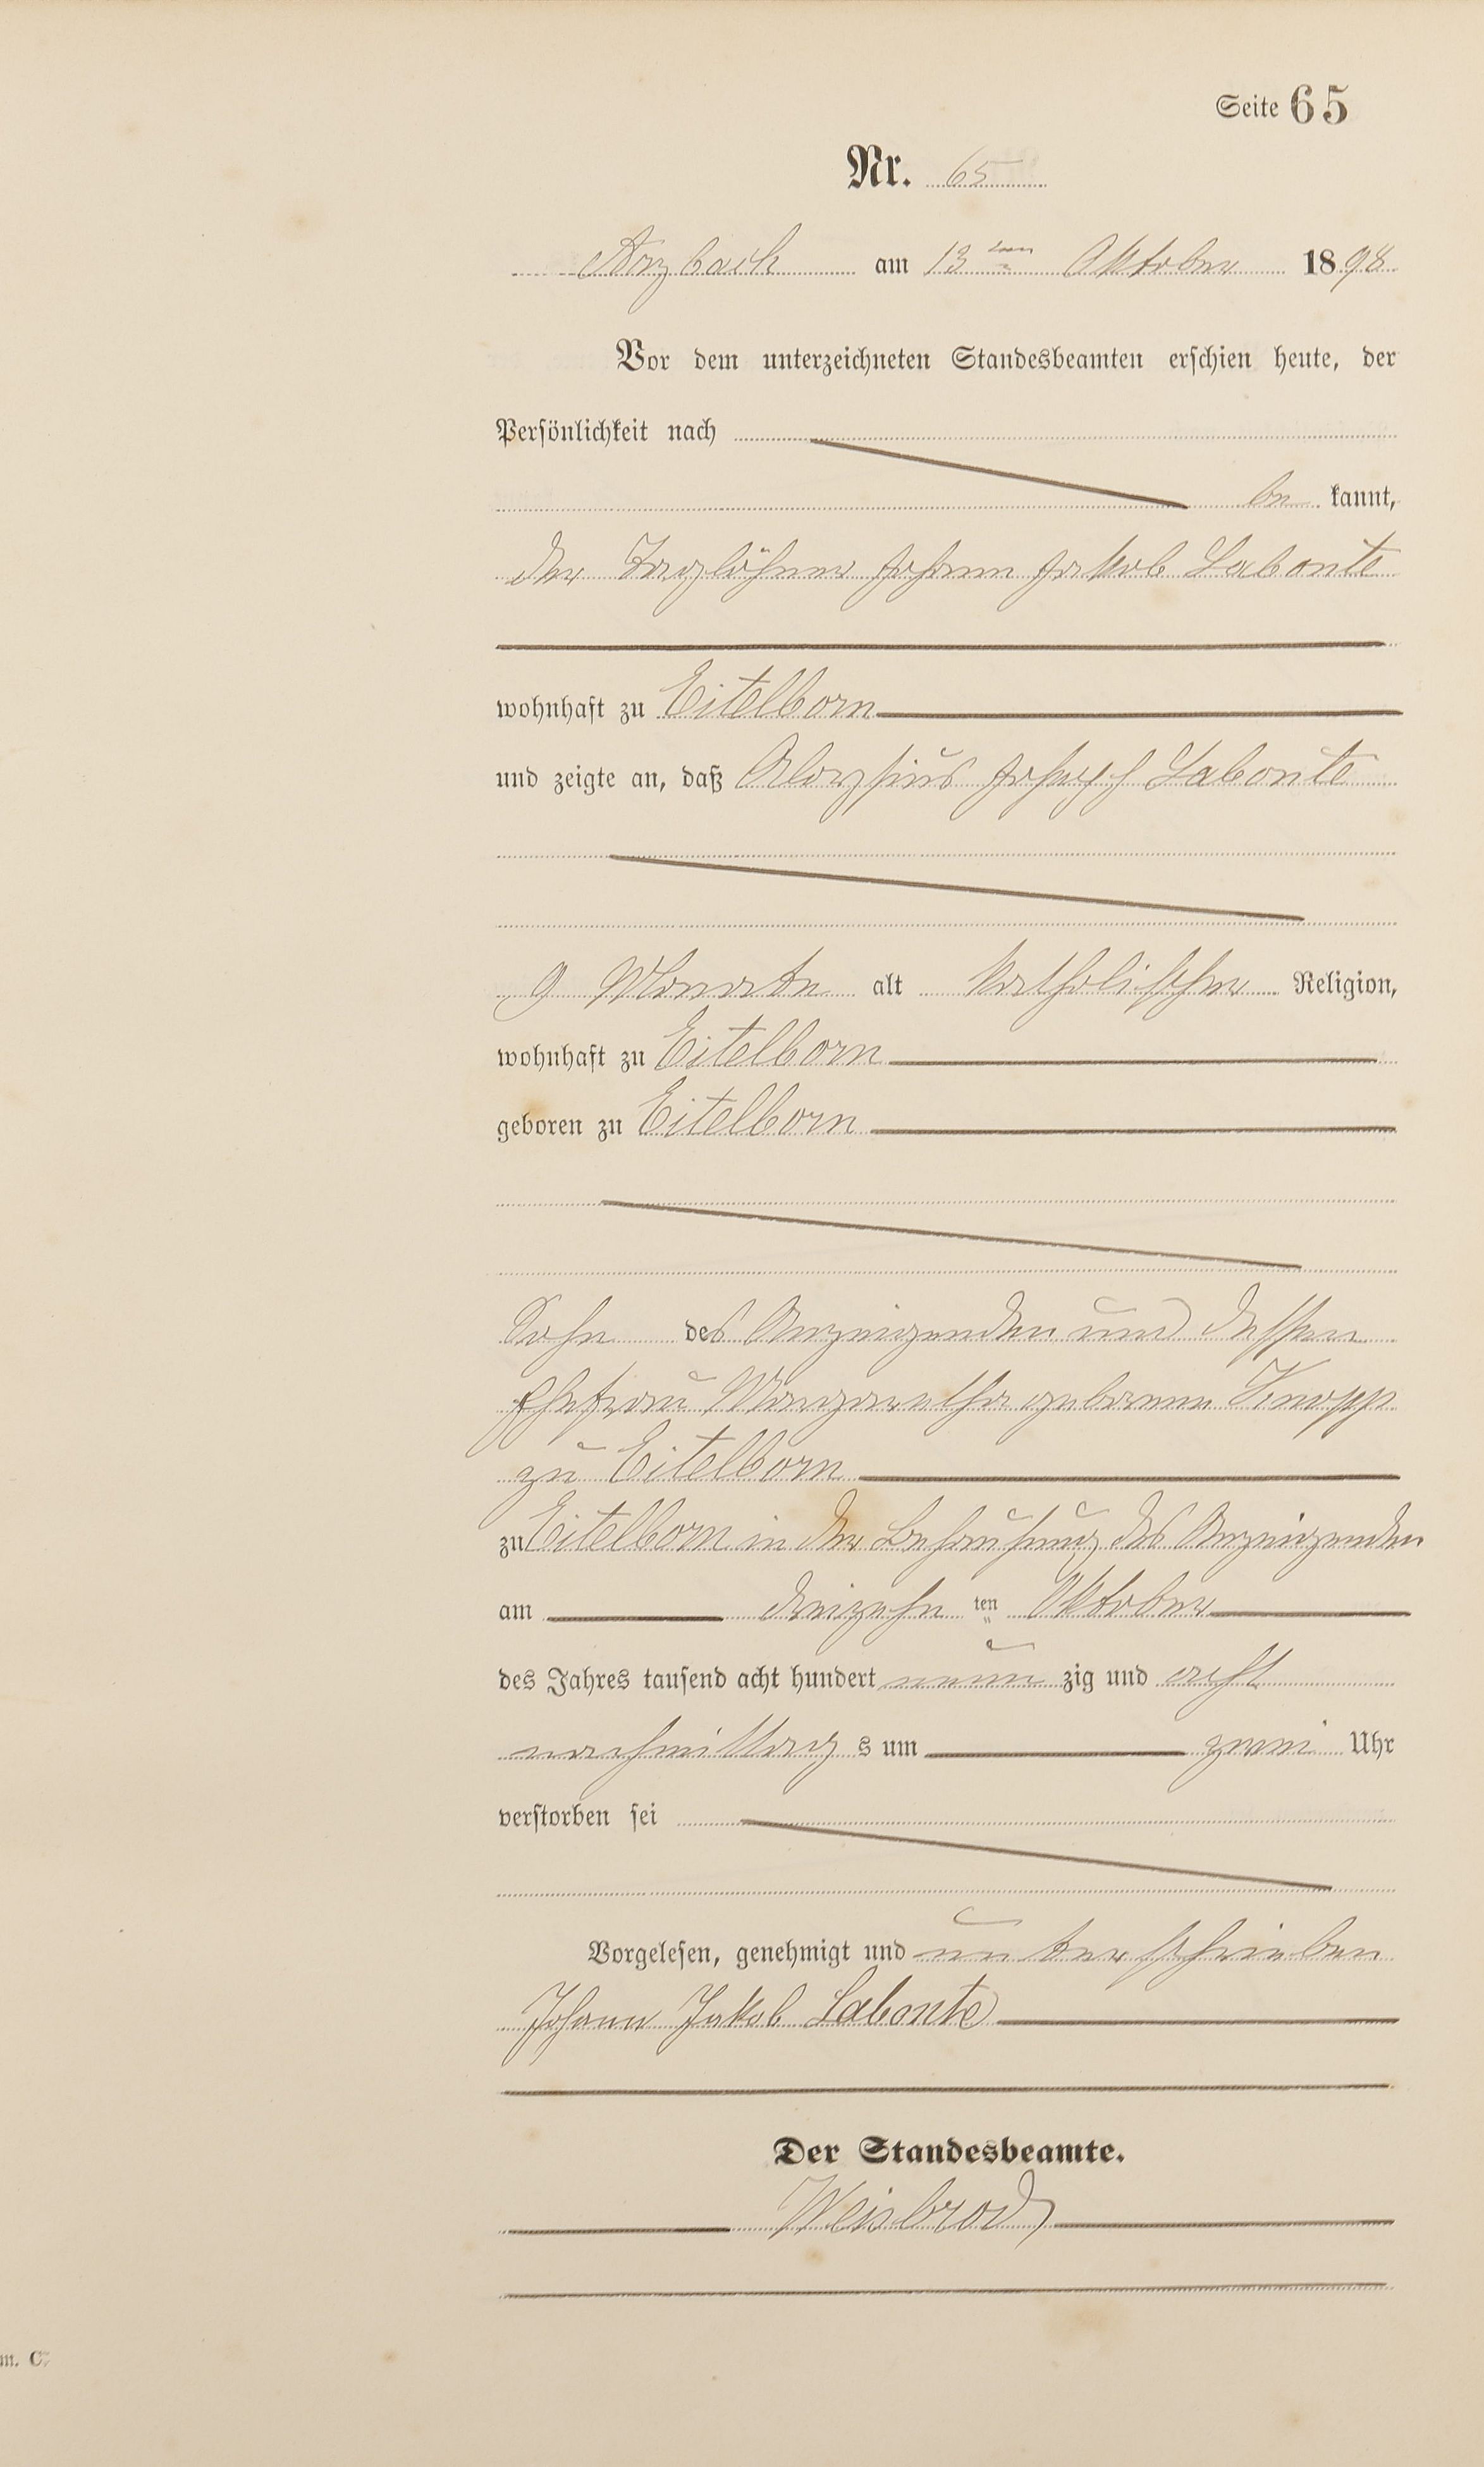 Seite 65
Nr. 65
Arzbach am 13 ten Oktober 1898
Vor dem unterzeichneten Standesbeamten erschien heute, der
Persönlichkeit nach
be kannt,
der Taglöhner Johann Jakob Labonte
wohnhaft zu Eitelborn
und zeigte an, daß Aloysius Joseph Labonte
9 Monate alt katholischer Religion,
wohnhaft zu Eitelborn
geboren zu Eitelborn
Sohn des Anzeigenden und dessen
Ehefrau Margaretha geborene Knopp
zu Eitelborn
zu Eitelborn in der Behausung des Anzeigenden
am dreizehn ten Oktober
des Jahres tausend acht hundert neun zig und acht
nachmittag s um zwei Uhr
verstorben sei
Vorgelesen, genehmigt und unterschrieben
Johann Jakob Labonte
Der Standesbeamte.
Weisbrod
m. C.